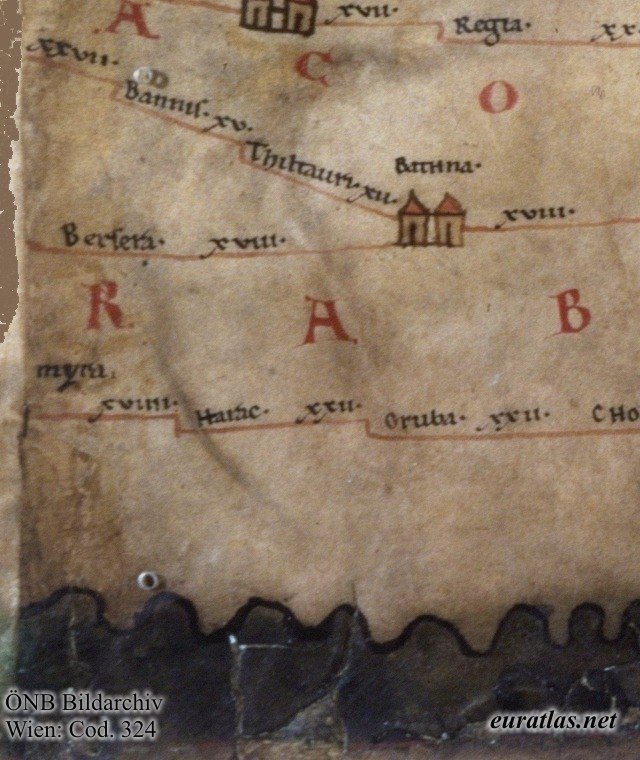 A
xvii.
Regia.
xx
xxvii.
C
O
Bannis. xv.
Thiltauri. xii.
Bathna.
xviii.
Bersera. xviii.
R A B
myra.
xviiii. Haric. xxii. Oruba. xxii. Cho
ÖNB Bildarchiv
Wien: Cod. 324
euratlas.net